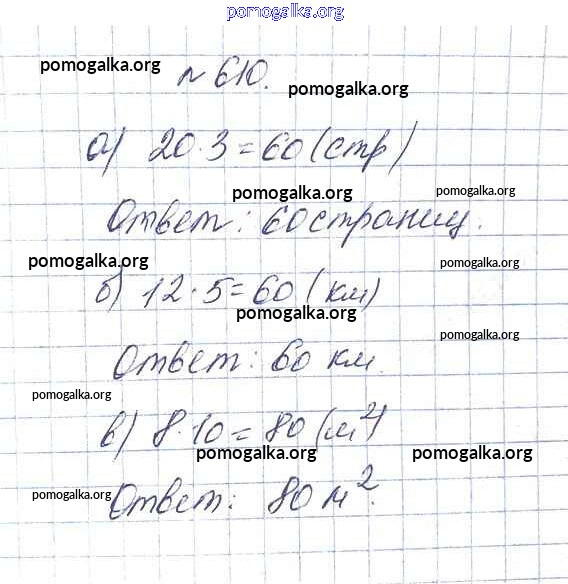 pomogalka.org
pomogalka.org
№ 610.
pomogalka.org
а) 20·3=60(стр)
pomogalka.org
pomogalka.org
Ответ: 60 страниц.
pomogalka.org
pomogalka.org
б) 12·5=60(км)
pomogalka.org
pomogalka.org
Ответ: 60 км.
pomogalka.org
в) 8·10=80(м²)
pomogalka.org
pomogalka.org
pomogalka.org
Ответ: 80 м².